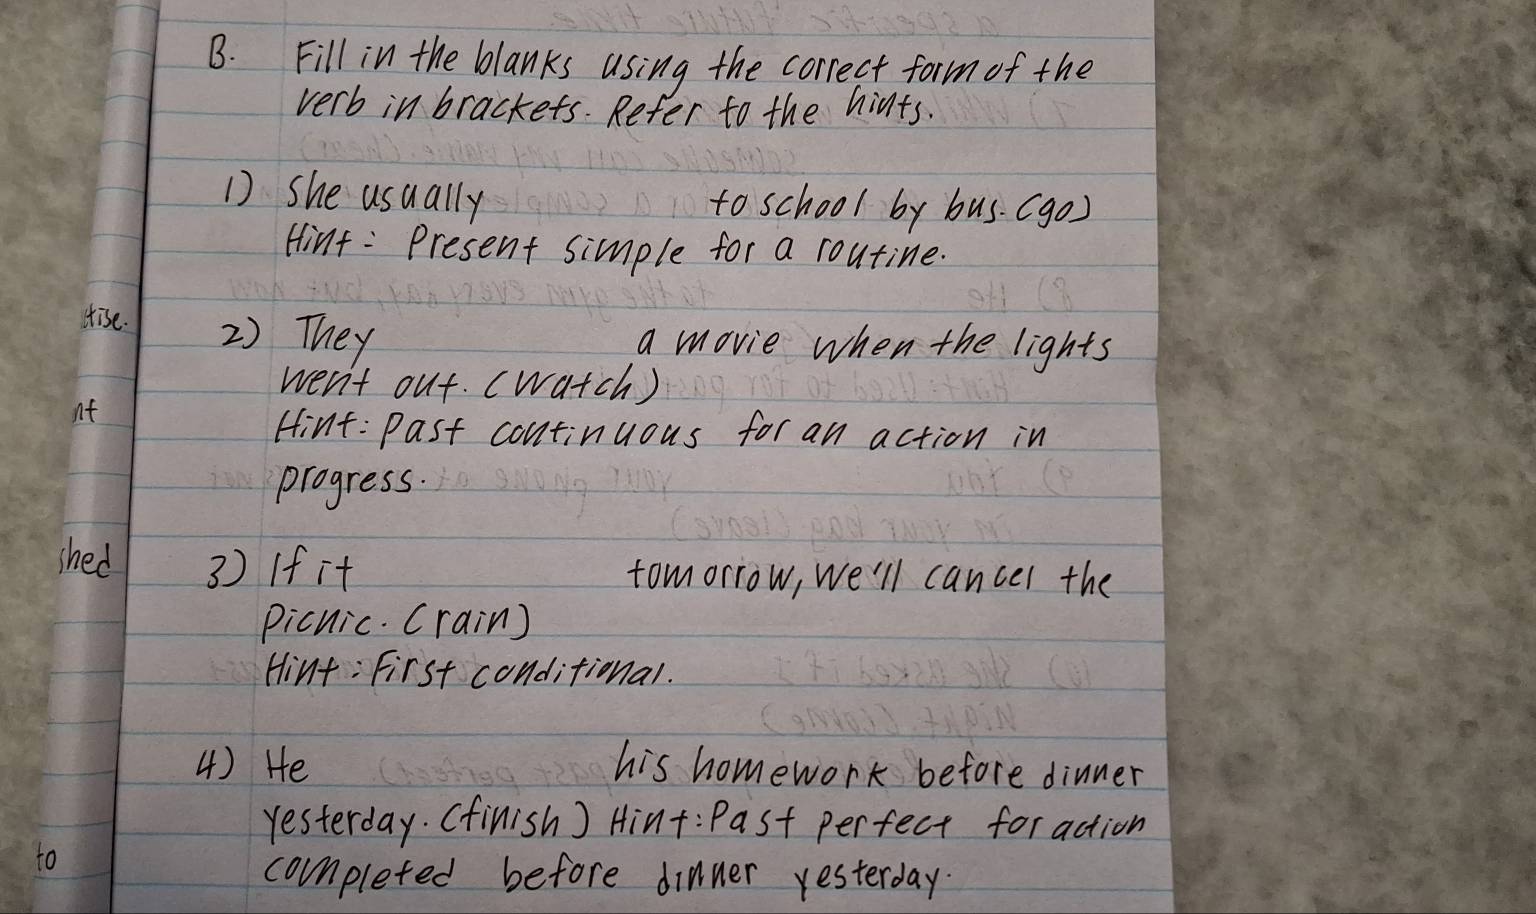 B. Fill in the blanks using the correct form of the
verb in brackets. Refer to the hints.
1) She usually to school by bus. (go)
Hint: Present simple for a routine.
2) They a movie when the lights
went out. (watch)
Hint: Past continuous for an action in
progress.
3) If it tomorrow, we'll cancel the
picnic. (rain)
Hint: First conditional.
4) He his homework before dinner
yesterday. (finish) Hint: Past perfect for action
completed before dinner yesterday.
shed
to